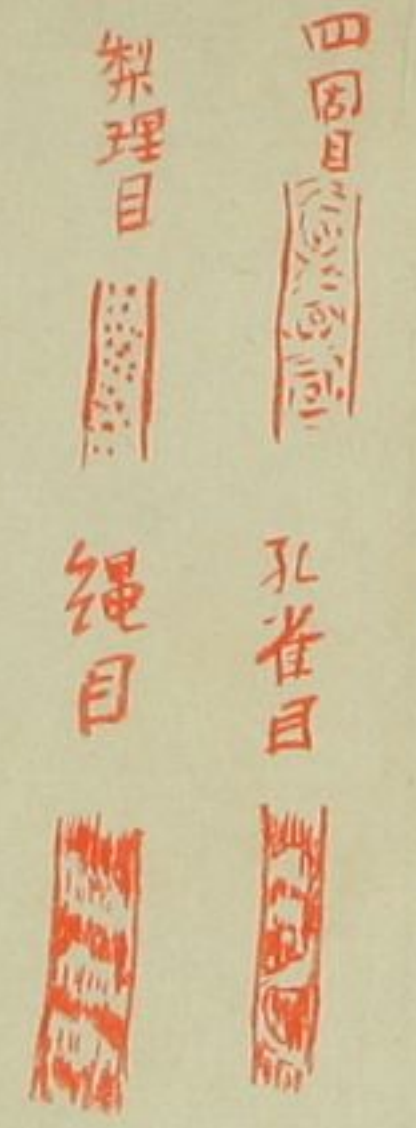 四周目
梨理目
孔雀目
绳目